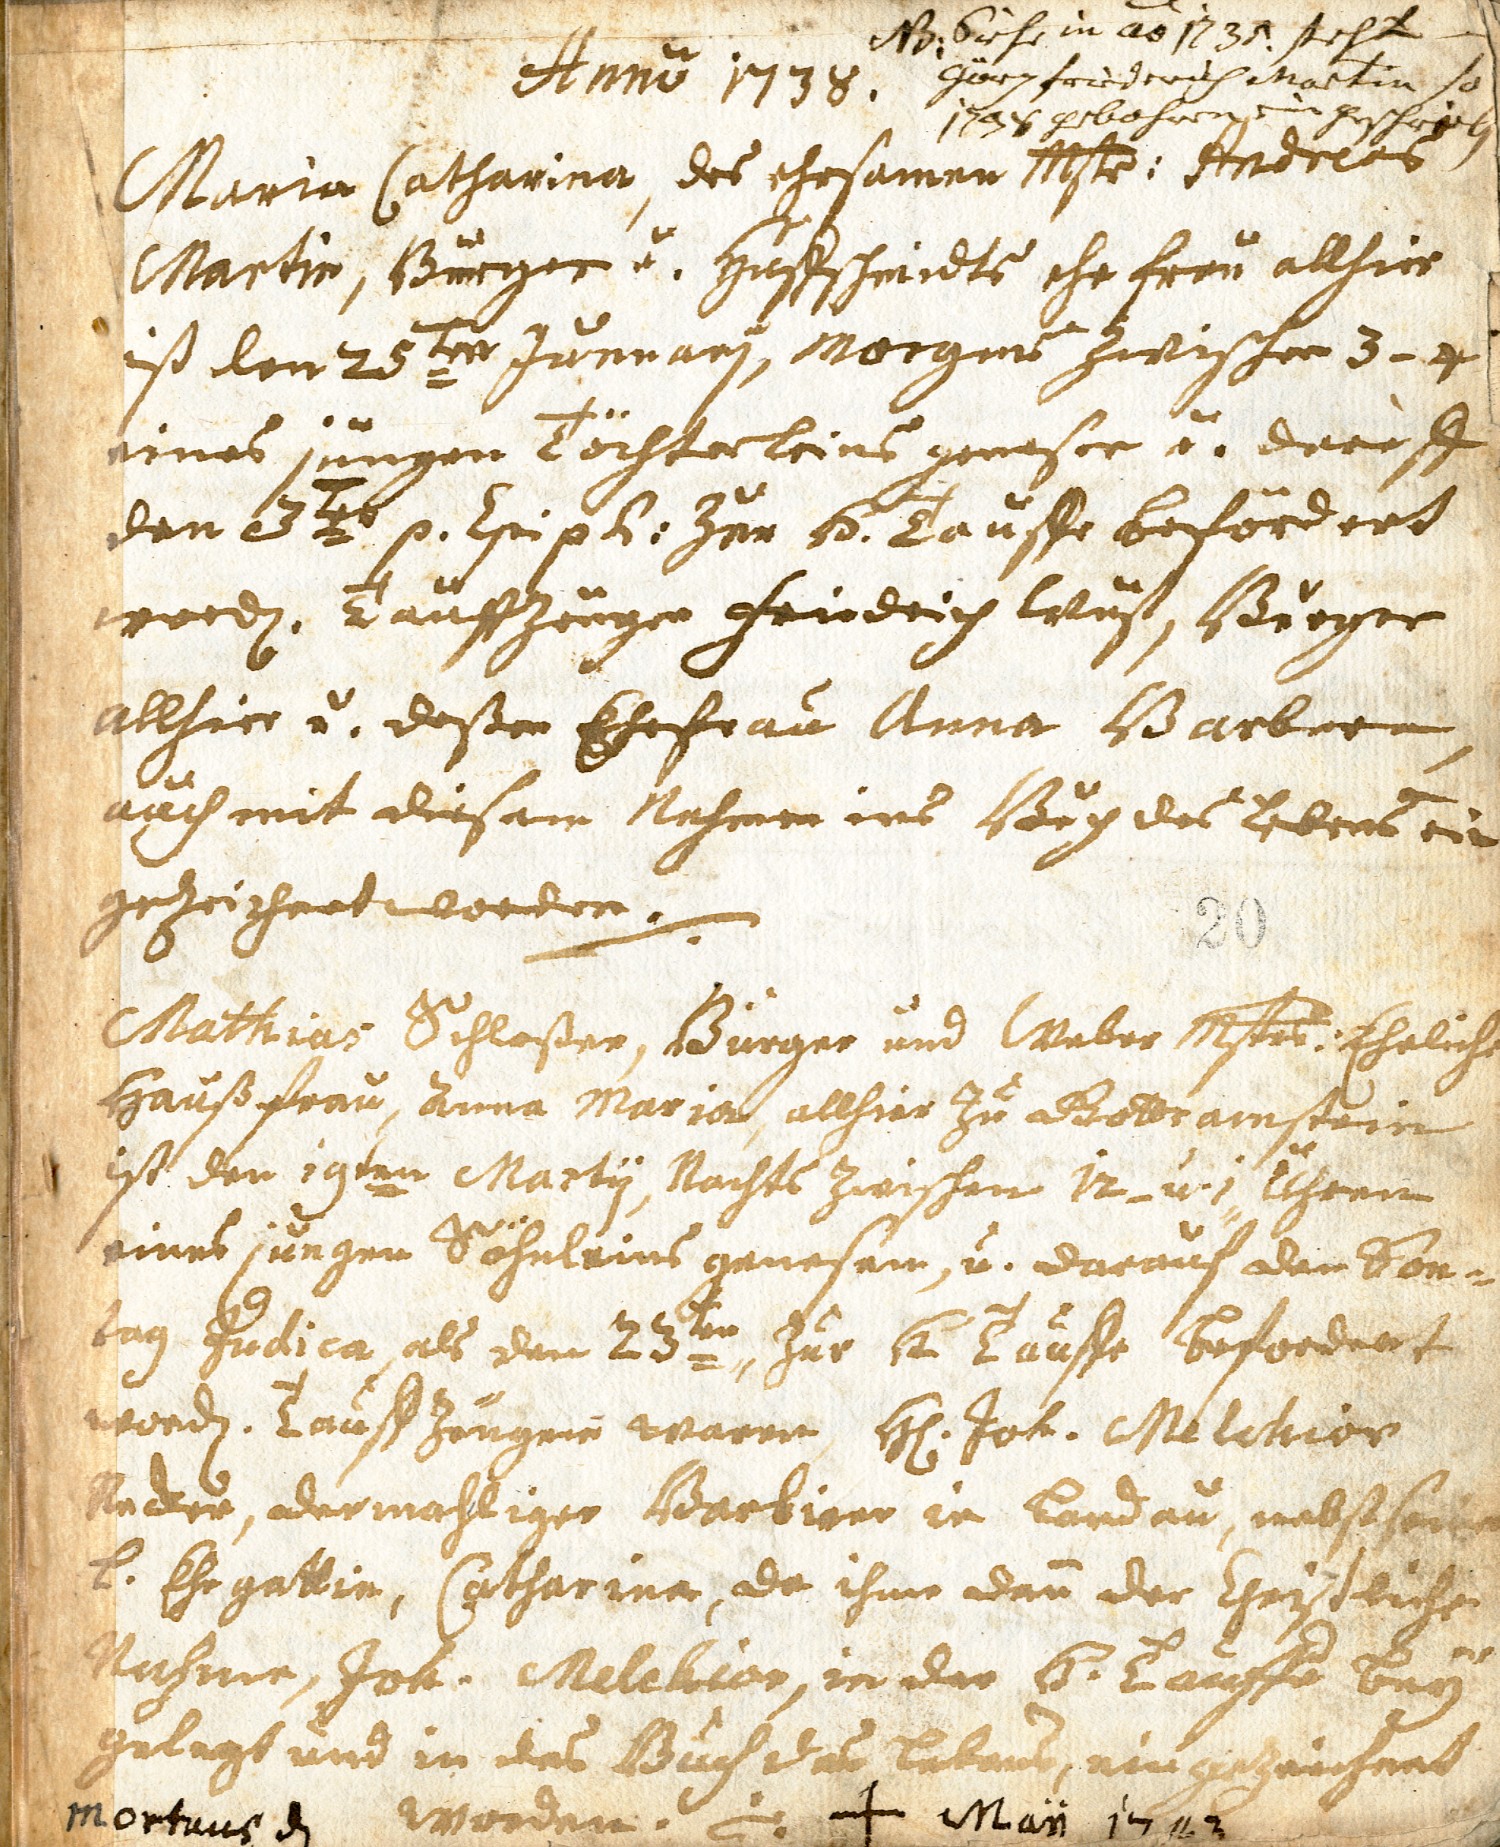 NB. Siehe in ao 1735. steht
Görg friederich Martin so
1738 gebohren ein geschrieb
Anno 1738.
Maria Catharina, des ehrsamen Mstr: Andreas
Martin, Bürger u. Huffschmidts ehefrau allhier
ist den 25ten Januarij, Morgens zwischen 3-4
eines jungen Töchterleins genesen u. drauff
den 3ten p. Epiph: zur H. Tauffe befördert
word. Tauffzeugen friedrich Wüst, Bürger
allhier u. deßen Ehefrau Anna Barbara,
auch mit diesem Nahmen ins Buch des Lebens ein
gezeichnet worden.
20
Mathias Schloßer, Bürger und Weber Mstrs: Eheliche
Haußfrau, Anna Maria, allhier zu
ist den 19ten Martij, Nachts zwischen 12 u. 1 Uhren
eines jungen Söhnleins genesen, u. darauf den Son-
tag Judica, als den 23ten zur H. Tauffe befördert
word. Tauffzeugen waren H. Joh. Melchior
dermahliger Barbirer in Landau, nebst seiner
l. Ehegattin, Catharina, da ihme dan der Christliche
Nahme, Joh. Melchior, in der H. Tauffe beÿ
gelegt und in das Buch des Lebens, eingezeichnet
mortuus d worden. + Maÿ 1742